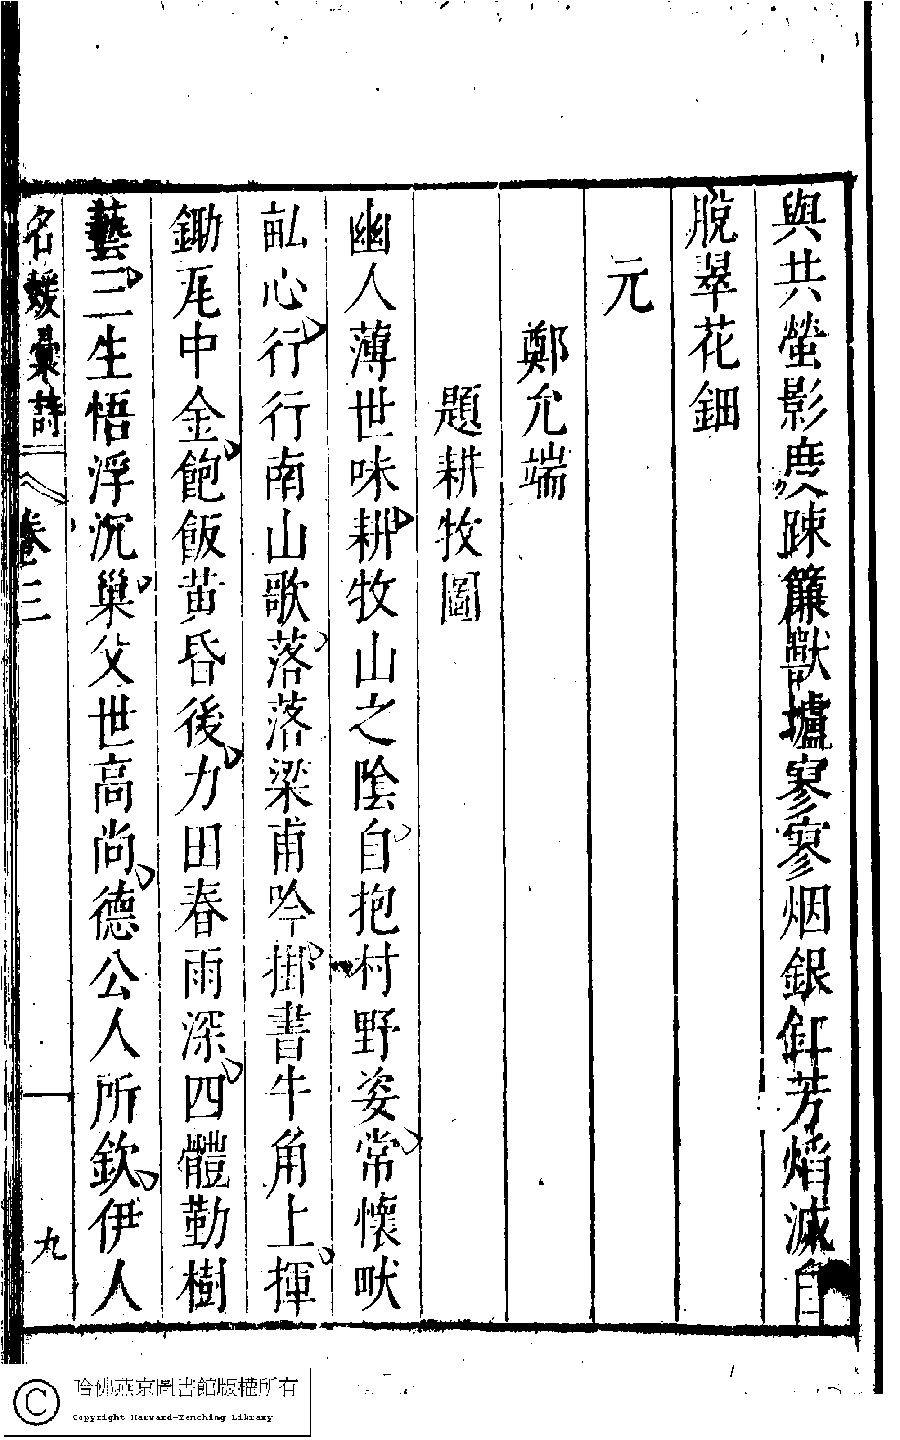 與共螢影度疎簾獸壚寥寥烟銀釭芳熖滅自
脫翠花鈿
元
鄭允端
題耕牧圖
幽人薄世味耕牧山之陰自抱村野姿常懷畎
畝心行行南山歌落落梁甫吟掛書牛角上揮
鋤瓦中金飽飯黃昏後力田春雨深四體勤樹
藝三生悟浮沉巢父世高尚德公人所欽伊人
名媛彙詩 卷三 九
哈佛燕京圖書館版權所有
Copyright Harvard-Yenching Library